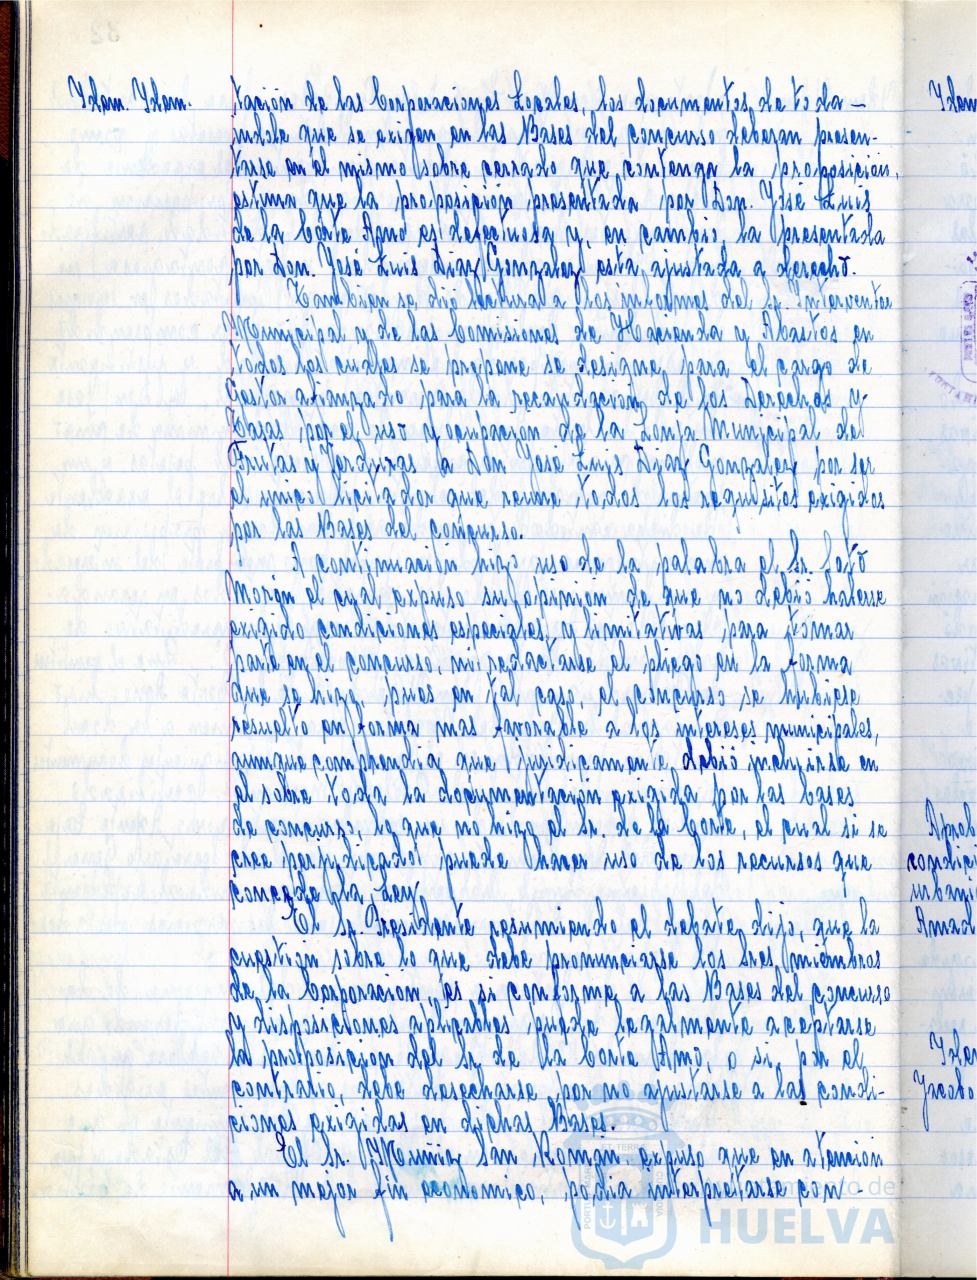 Idem. Idem.
tación de las Corporaciones Locales, los documentos de toda
indole que se exigen en las Bases del concurso deberán presen-
tarse en el mismo sobre cerrado que contenga la proposición,
estima que la proposición presentada por Don. José Luis
de la Corte Amo es defectuosa y, en cambio, la presentada
por Don. José Luis Diaz Gonzalez está ajustada a derecho.
Tambien se dió lectura a los informes del Sr. Interventor
Municipal y de las Comisiones de Hacienda y Abastos en
todos los cuales se propone se designe para el cargo de
Gestor afianzado para la recaudación de los Derechos y
Tasas por el uso y ocupación de la Lonja Municipal de
Frutas y Verduras a Don José Luis Diaz Gonzalez por ser
el unico licitador que reune todos los requisitos exigidos
por las Bases del concurso.
A continuación hizo uso de la palabra el Sr. Soto
Morón el cual expuso su opinión de que no debió haberse
exigido condiciones especiales y limitativas para tomar
parte en el concurso, ni redactarse el pliego en la forma
que se hizo, pues en tal caso, el concurso se hubiese
resuelto en forma mas favorable a los intereses municipales,
aunque comprendia que juridicamente, debió incluirse en
el sobre toda la documentación exigida por las bases
de concurso, lo que no hizo el Sr. de la Corte, el cual si se
cree perjudicado puede hacer uso de los recursos que
concede la Ley.
El Sr. Presidente resumiendo el debate dijo, que la
cuestión sobre lo que debe pronunciarse los Sres miembros
de la Corporación, es si conforme a las Bases del concurso
y disposiciones aplicables puede legalmente aceptarse
la proposición del Sr. de la Corte Amo, o si, por el
contrario, debe desecharse por no ajustarse a las condi-
ciones exigidas en dichas Bases.
El Sr. Muñiz San Roman expuso que en atención
a un mejor fin economico, podia interpretarse con-
Ayuntamiento de
HUELVA